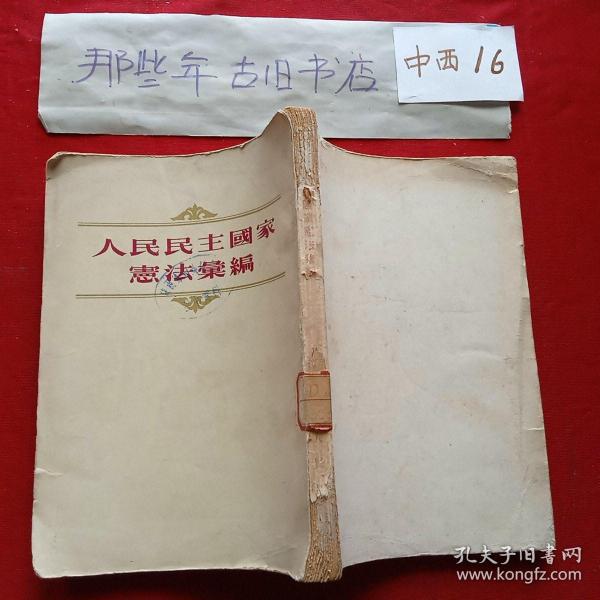 那些年古旧书店
中西16
人民民主國家
憲法彙編
孔夫子旧书网
www.kongfz.com